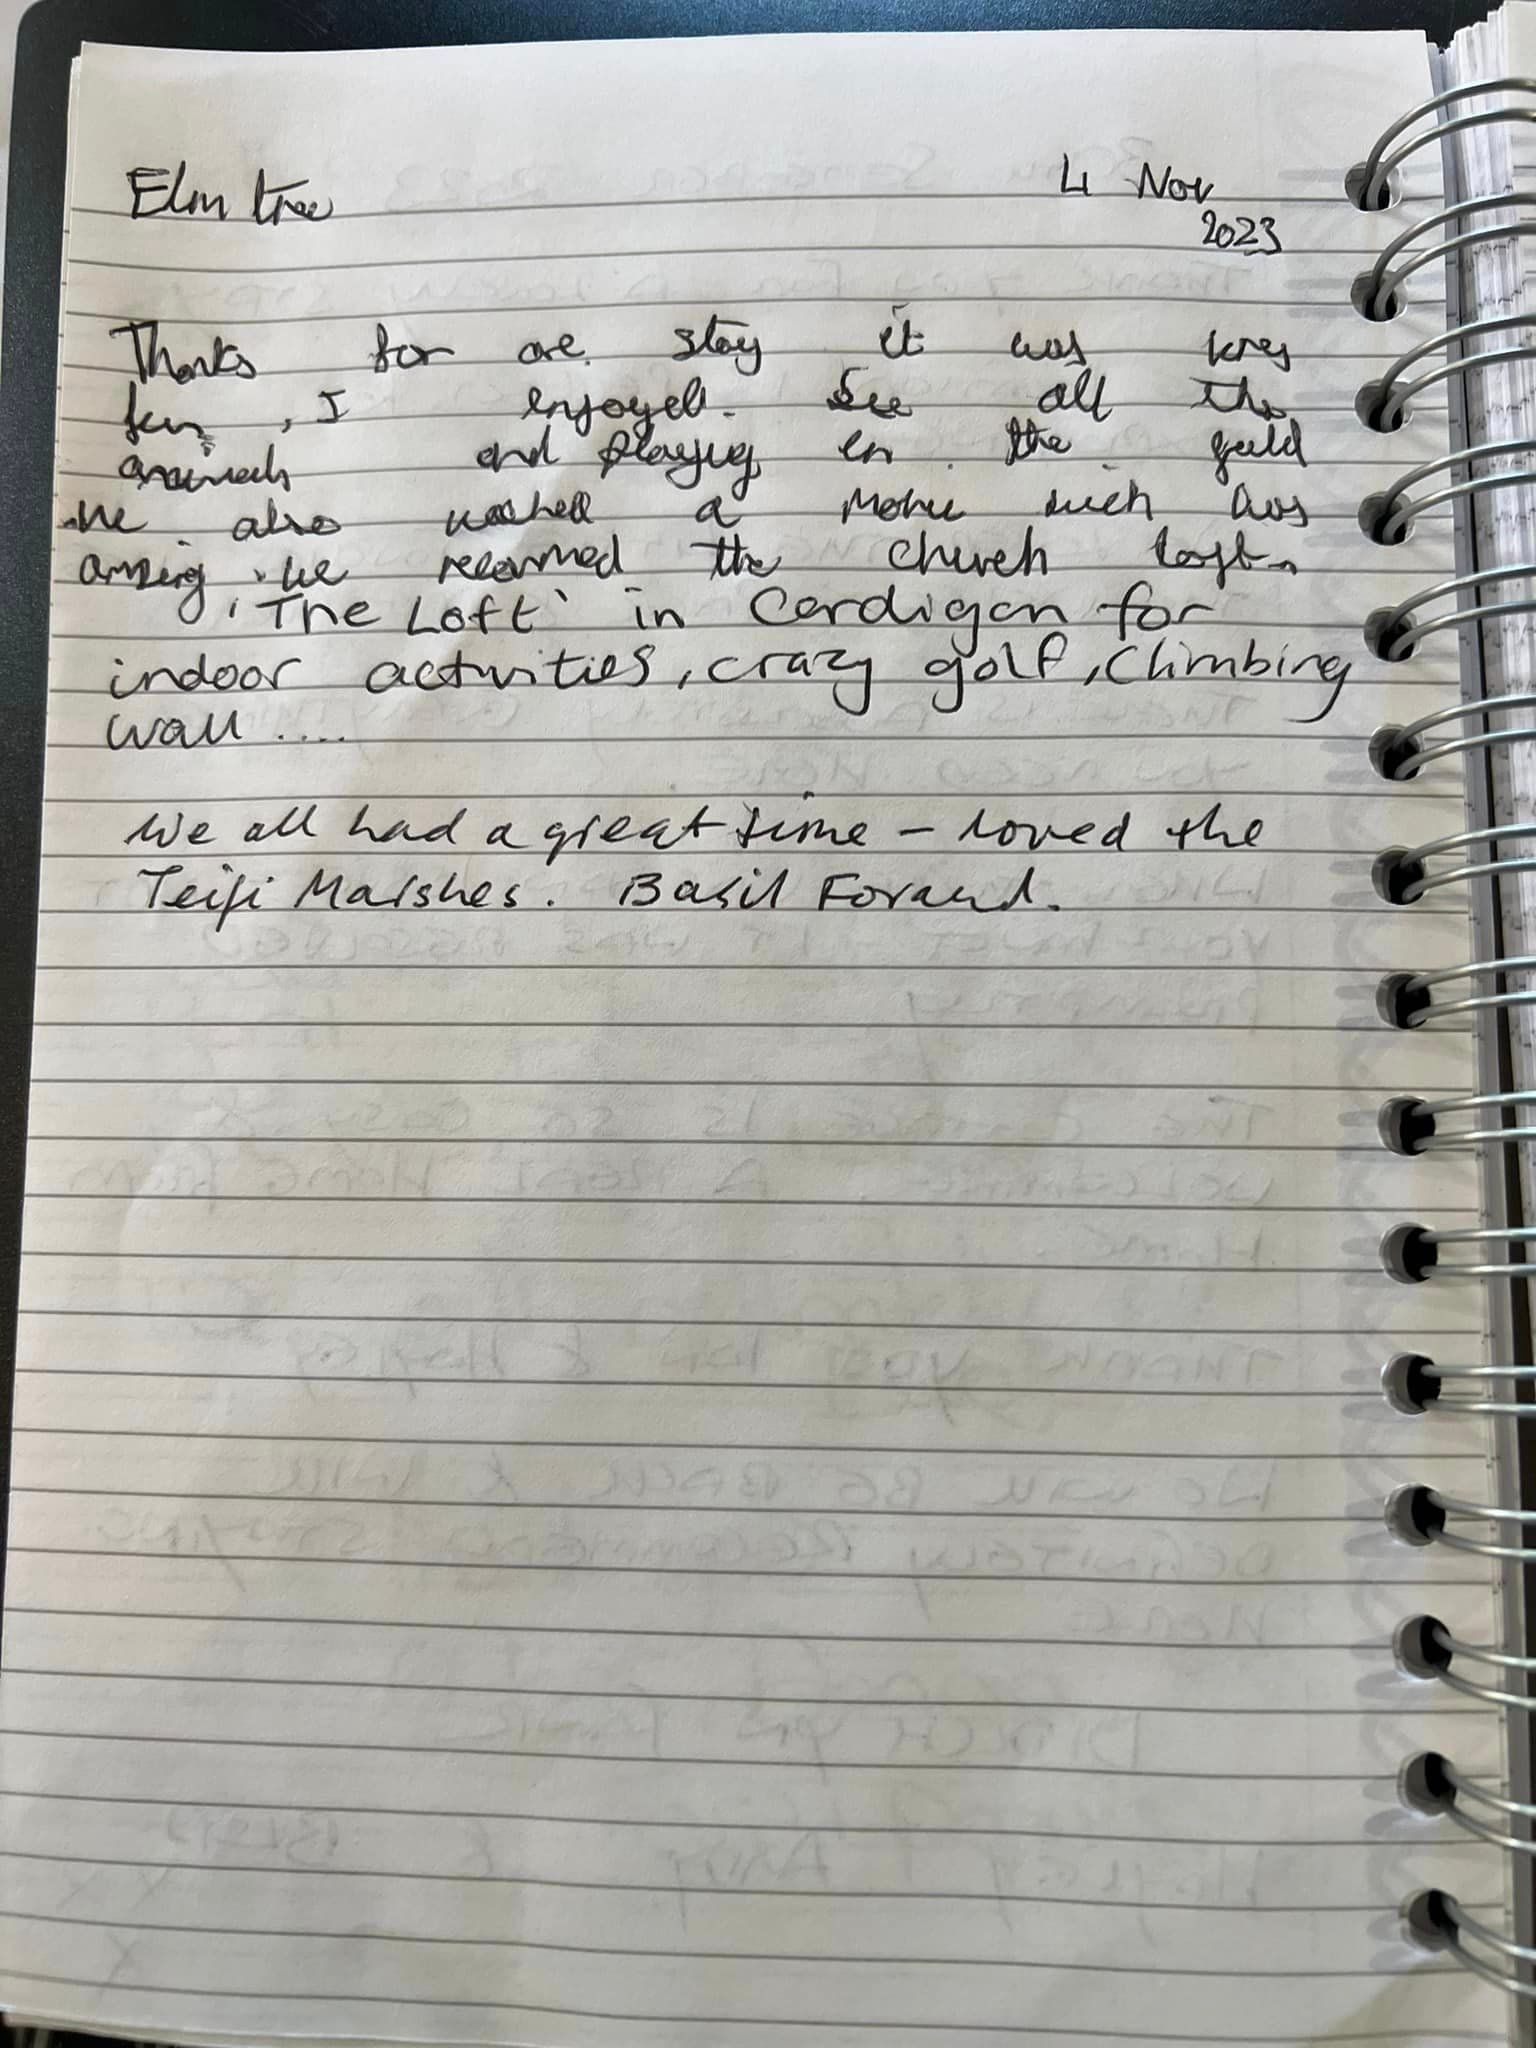 Elm tree 4 Nov
2023
Thanks for are stay it was very
fun, I enjoyed. See all the
animals and playing in the
We also watched a Movie such was
amzing. we the church loft
'The Loft' in Cardigan for
indoor activities, crazy golf, Climbing
wall ....
We all had a great time – loved the
Teifi Marshes. Basil Foraud.